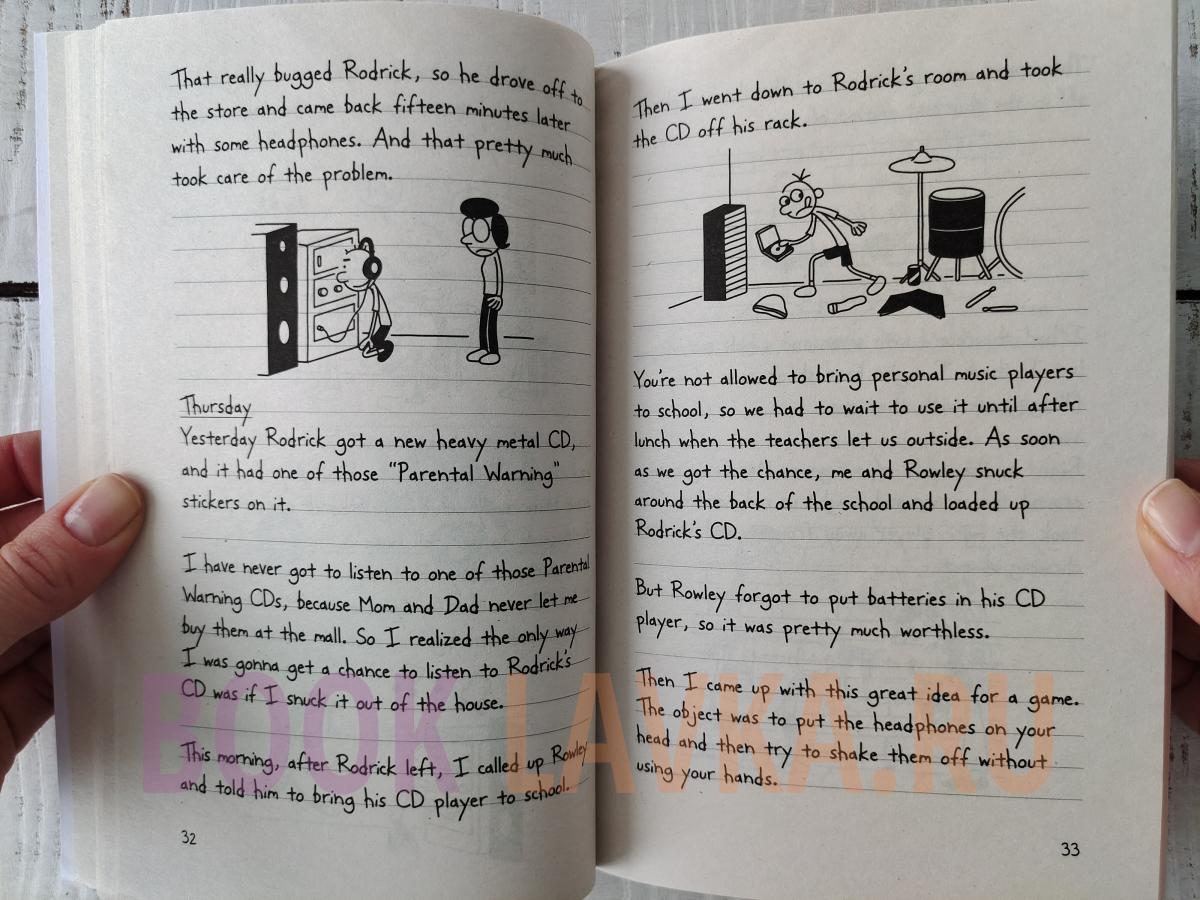 That really bugged Rodrick, so he drove off to
the store and came back fifteen minutes later
with some headphones. And that pretty much
took care of the problem.
Thursday
Yesterday Rodrick got a new heavy metal CD,
and it had one of those "Parental Warning"
stickers on it.
I have never got to listen to one of those Parental
Warning CDs, because Mom and Dad never let me
buy them at the mall. So I realized the only way
I was gonna get a chance to listen to Rodrick's
CD was if I snuck it out of the house.
This morning, after Rodrick left, I called up Rowley
and told him to bring his CD player to school.
32
Then I went down to Rodrick's room and took
the CD off his rack.
You're not allowed to bring personal music players
to school, so we had to wait to use it until after
lunch when the teachers let us outside. As soon
as we got the chance, me and Rowley snuck
around the back of the school and loaded up
Rodrick's CD.
But Rowley forgot to put batteries in his CD
player, so it was pretty much worthless.
Then I came up with this great idea for a game.
The object was to put the headphones on your
head and then try to shake them off without
using your hands.
33
BOOK LAVKA.RU